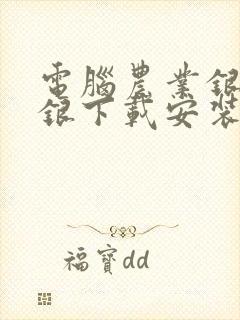 電腦農業銀
銀下載安裝
福寶dd